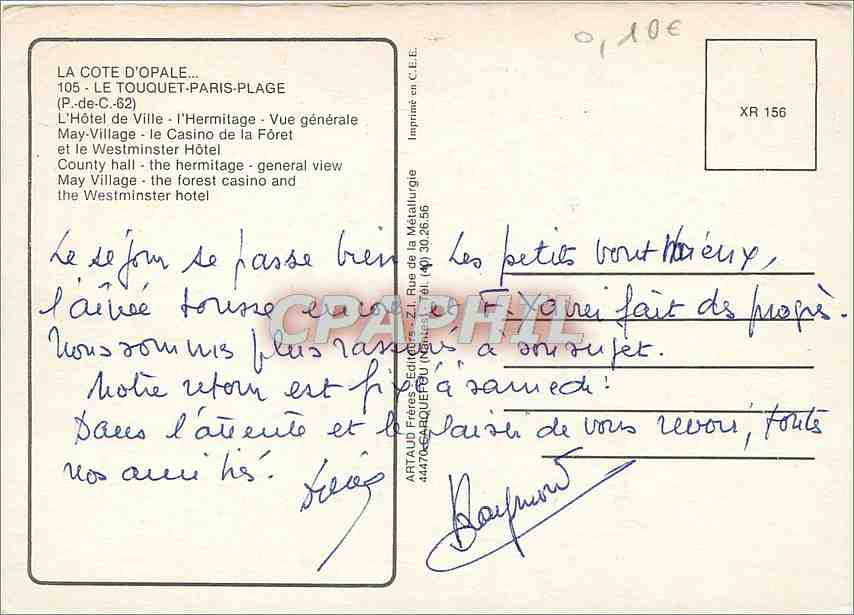 0,10€
LA COTE D'OPALE...
105 - LE TOUQUET-PARIS-PLAGE
(P.-de-C.-62)
L'Hôtel de Ville - l'Hermitage - Vue générale
May-Village - le Casino de la Fôret
et le Westminster Hôtel
County hall - the hermitage - general view
May Village - the forest casino and
the Westminster hotel
XR 156
Imprimé en C.E.E.
ARTAUD Frères - Editeurs - Z.I. Rue de la Métallurgie
44470 CARQUEFOU (Nantes) - Tél. (40) 30.26.56
Le séjour se passe bien. Les petits vont mieux,
l'aînée tousse encore et F. Xavier fait des progrès.
Nous sommes plus rassurés à son sujet.
Notre retour est fixé à samedi.
Dans l'attente et le plaisir de vous revoir, toutes
nos amitiés.
Raymond
CPAPHIL